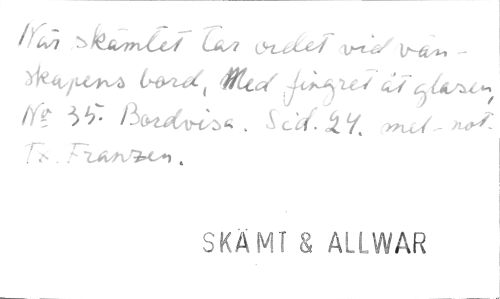 När skämtet tar ordet vid vän-
skapens bord, Med fingret åt glasen,
No 35. Bordvisa. Sid. 24. mel-not.
Fr. Franzen.
SKÄMT & ALLWAR